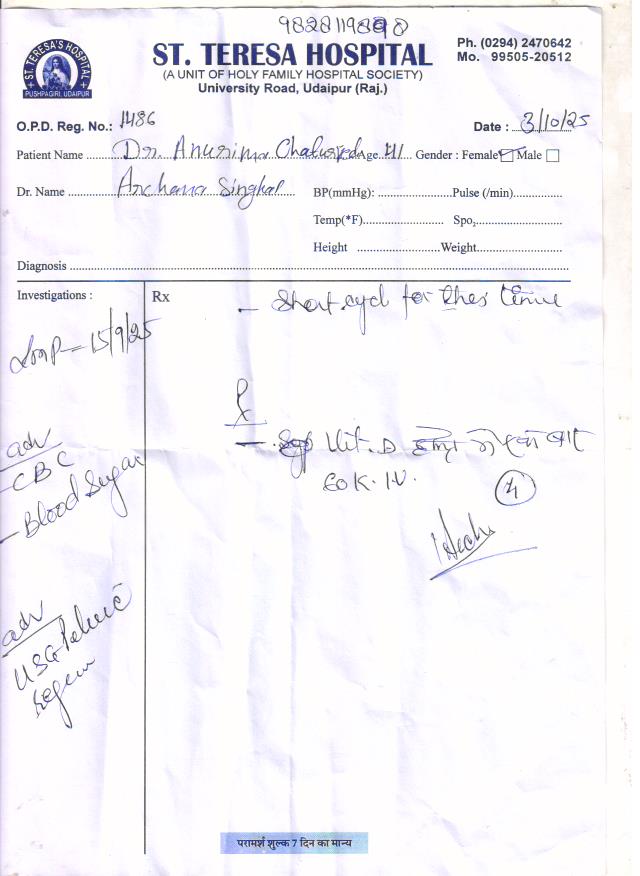 9828119898
ST. TERESA'S HOSPITAL
PUSHPAGIRI, UDAIPUR
ST. TERESA HOSPITAL
(A UNIT OF HOLY FAMILY HOSPITAL SOCIETY)
University Road, Udaipur (Raj.)
Ph. (0294) 2470642
Mo. 99505-20512
O.P.D. Reg. No.: 1486
Date : 3/10/25
Patient Name Dr. Anurima Chaturvedi Age 41 Gender : Female Male
Dr. Name Archana Singhal BP(mmHg): Pulse (/min)
Temp(*F) Spo2
Height Weight
Diagnosis
Investigations :
Rx
- Short cycl for thes time
LMP = 15/9/25
Rx
- Vit. D हफ्ते में एक बार
60K. I.U.
adv
- CBC
- Blood Sugar
adv
USG Pelvic
region
परामर्श शुल्क 7 दिन का मान्य